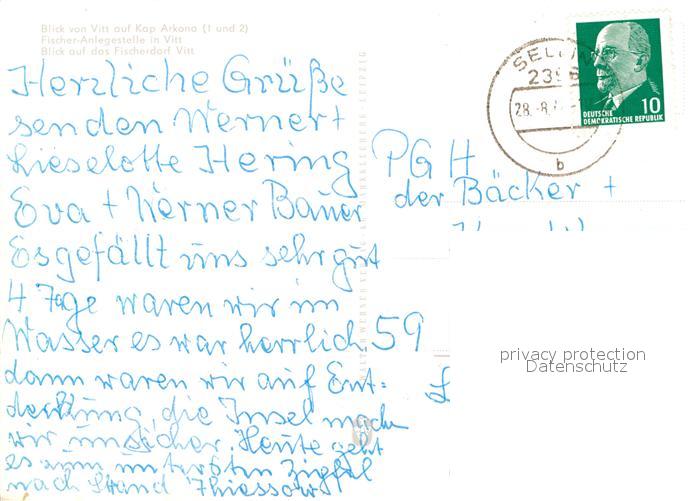 Blick von Vitt auf Kap Arkona (1 und 2)
Fischer-Anlegestelle in Vitt
Blick auf das Fischerdorf Vitt
Herzliche Grüße
senden Werner +
Lieselotte Hering
Eva + Werner Bauer
Es gefällt uns sehr gut
4 Tage waren wir im
Wasser es war herrlich
dann waren wir auf Ent=
deckung, die Insel machen
wir unsicher. Heute geht
es zum untersten Zipfel
nach Strand Thiessow
SELLIN
28.-8.
b
10
DEUTSCHE
DEMOKRATISCHE REPUBLIK
PGH
der Bäcker +
59
privacy protection
Datenschutz